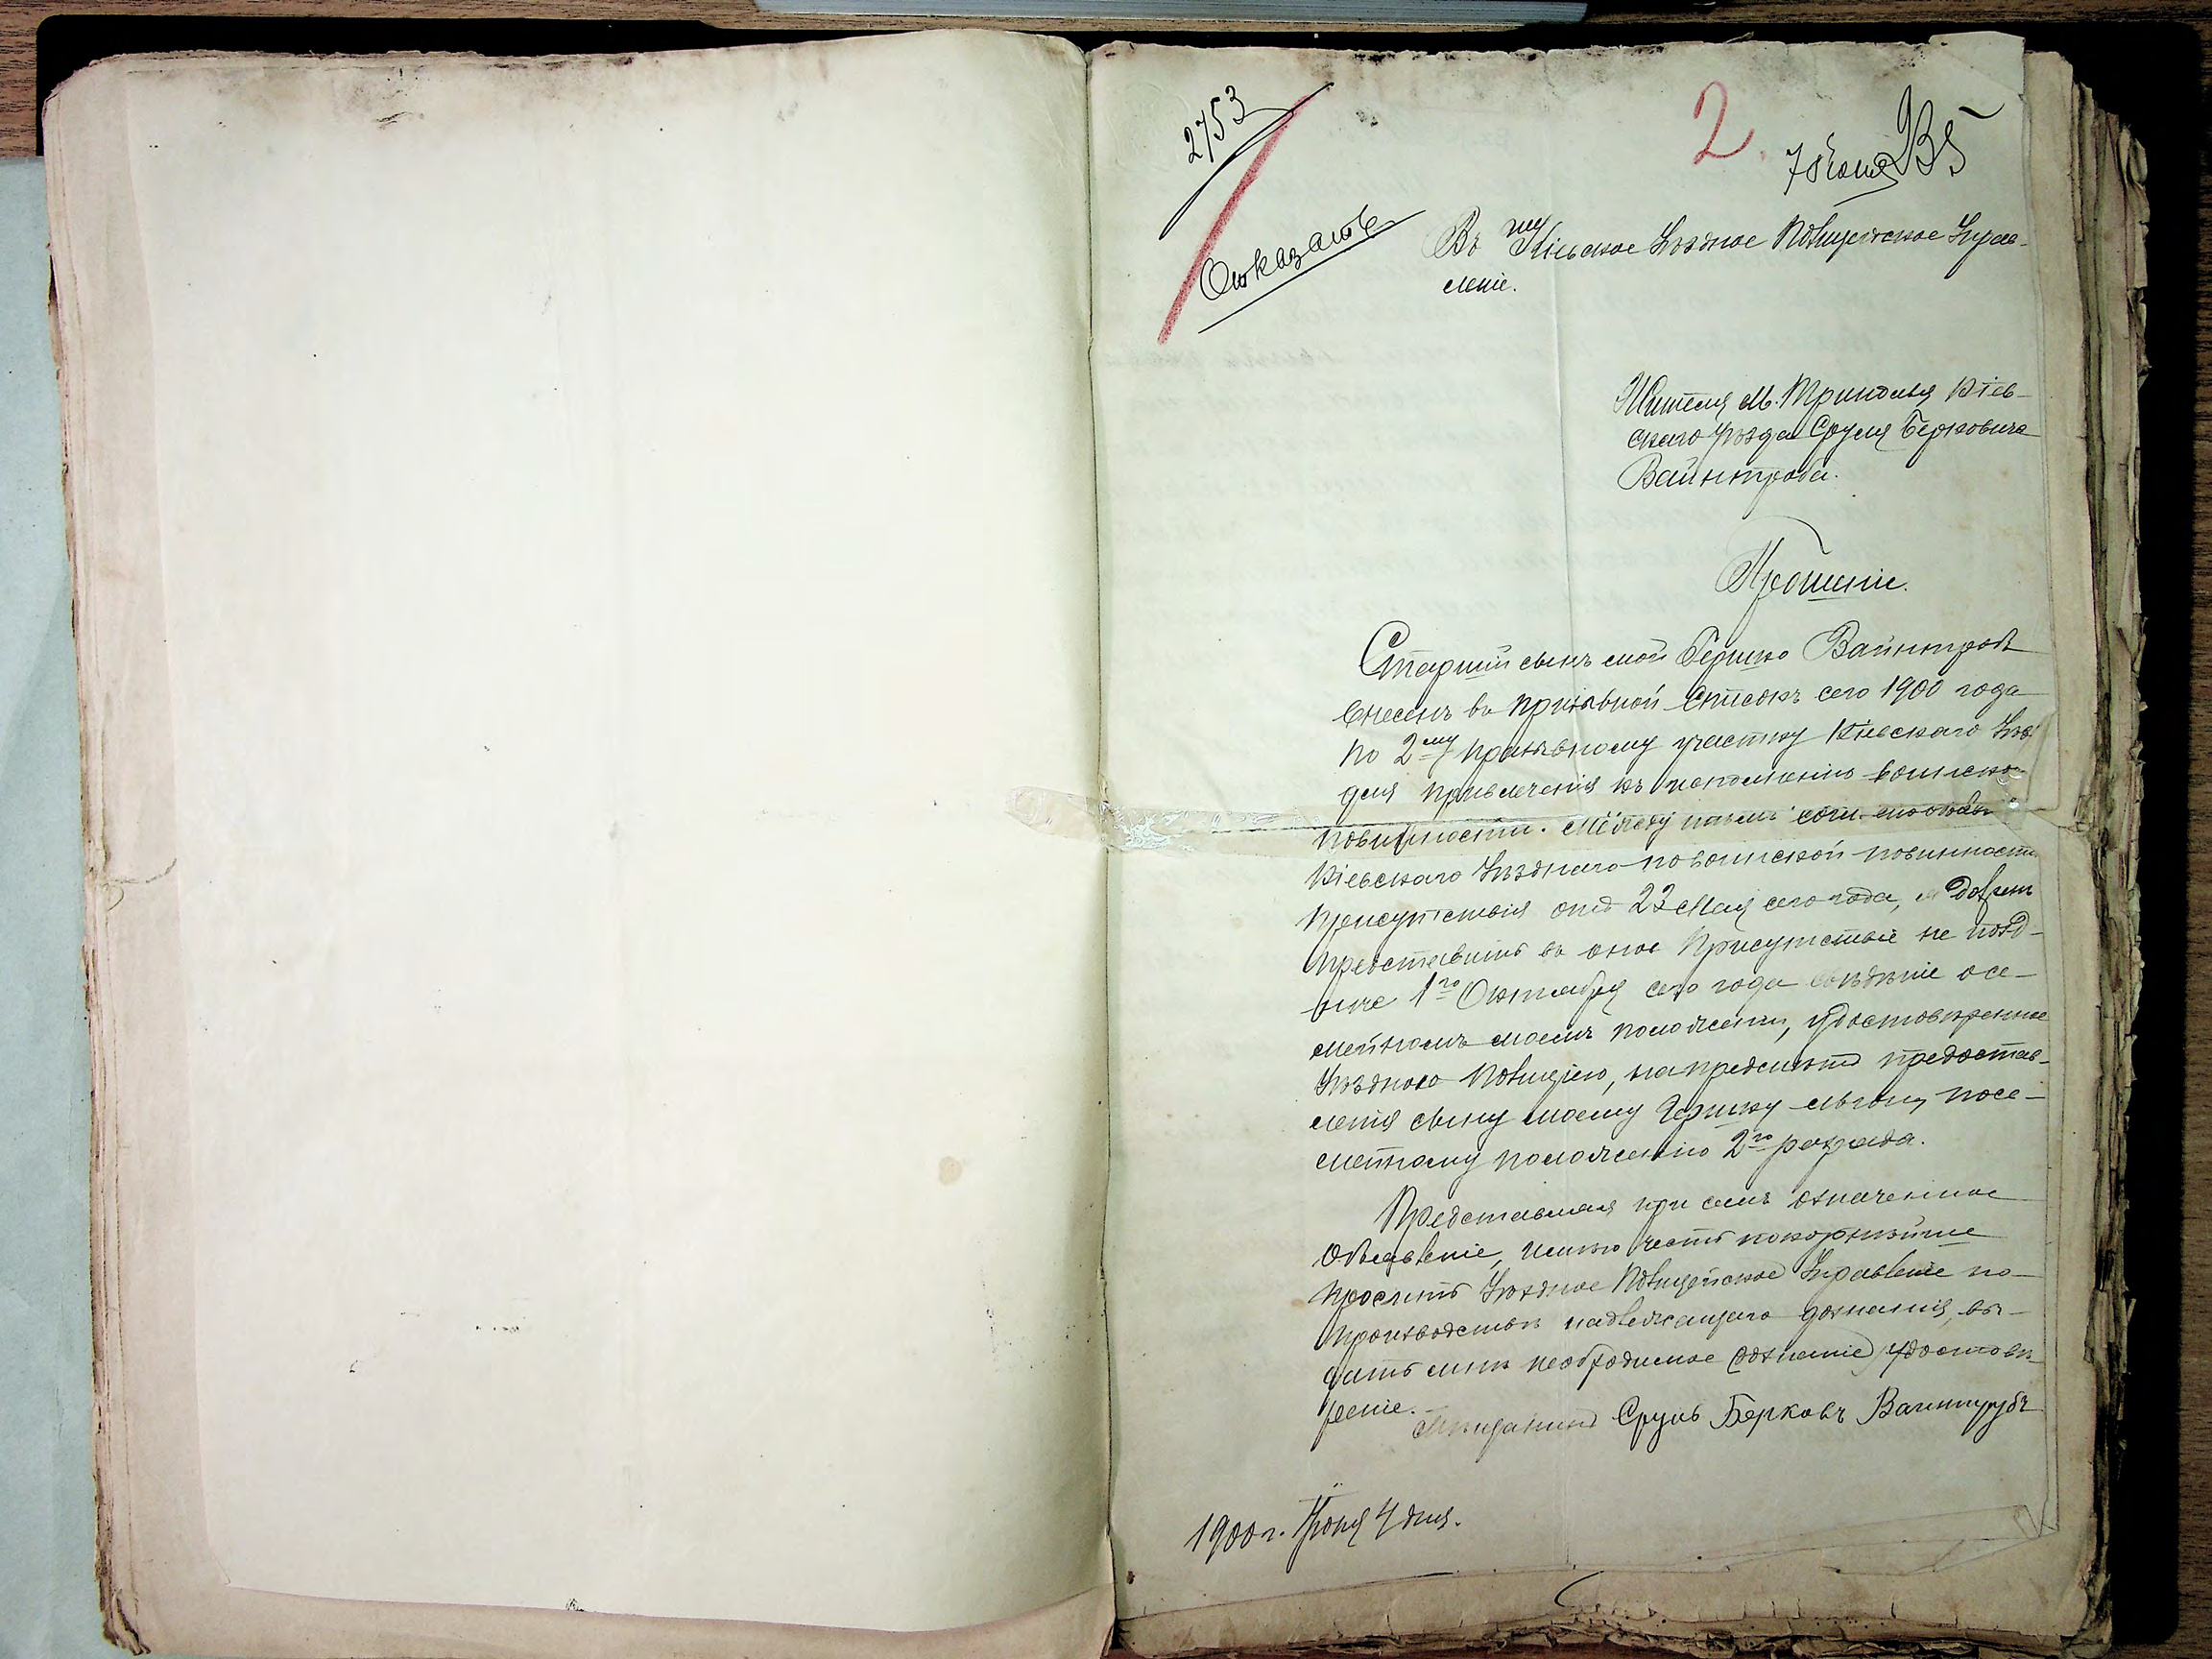 2753
2.
7 Июня
Отказать
Въ Кіевское Уѣздное Полицейское Управ-
леніе.
Жителя м. Триполья Кіев-
скаго уѣзда Сруля Берковича
Вайнтроба.
Прошеніе.
Старшій сынъ мой Гершко Вайнтробъ
внесенъ въ призывной списокъ сего 1900 года
по 2му призывному участку Кіевскаго Уѣз
для привлеченія къ исполненію воинской
повинности. Между тѣмъ
Кіевскаго Уѣзднаго по воинской повинности
Присутствія отъ 23 Мая сего года, я долженъ
представить въ оное Присутствіе не позд-
нѣе 1го Октября сего года свѣдѣніе о се-
мейномъ моемъ положеніи, удостовѣренное
Уѣздною Полиціею, на предметъ предостав-
ленія сыну моему Гершку льготы по се-
мейному положенію 2го разряда.
Представляя при семъ означенное
Объявленіе, имѣю честь покорнѣйше
просить Уѣздное Полицейское Управленіе по
производствѣ надлежащаго дознанія, вы-
дать мнѣ необходимое удостовѣ-
реніе.
Мѣщанинъ Сруль Берковъ Вайнтрубъ
1900 г. Іюня 4 дня.